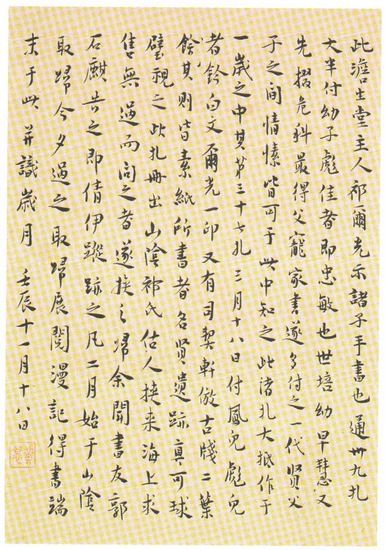 此澹生堂主人祁爾光示諸子手書也通卅九札
大半付幼子彪佳者即忠敏也世培幼早慧又
先掇危科最得父寵家書遂多付之一代賢父
子之間情愫皆可于此中知之此諸札大抵作于
一歲之中其第三十七札三月十八日付鳳兒彪兒
者鈐白文爾光一印又有司契軒倣古牋二葉
餘其則皆素紙所書者名賢遺跡真可球
璧視之此札冊出山陰祁氏估人挾来海上求
售無過而問之者遂挾之歸余聞書友郭
石麒告之即倩伊蹤跡之凡二月始于山陰
取歸今夕過之取歸展閱漫記得書端
末于此并識歲月 壬辰十一月十八日